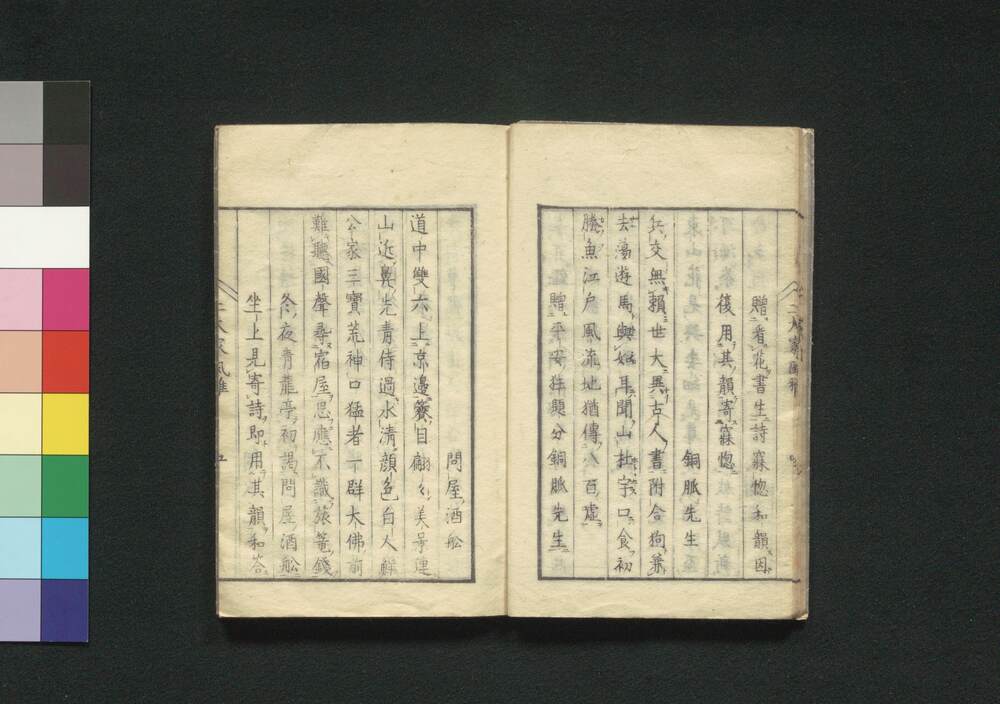 贈看花書生詩寐惚和韻因
復用其韻寄寐惚
銅脈先生
兵交無賴世大異古人書附合狗兼
去蕩遊馬與如耳聞山出字口食初
勝魚江戶風流地猶傳八百虛
贈平安惟顯分銅脈先生
二大家風雅
問屋酒舩
道中雙六上京邊簺目翩々美号連
山近鼻先青侍過水清顏色白人鮮
公家三寶荒神口猛者一群大佛前
難聽國聲尋宿屋思應不識旅篭錢
冬夜青龍亭初謁問屋酒舩
坐上見寄詩即用其韻和答
二大家風雅
五